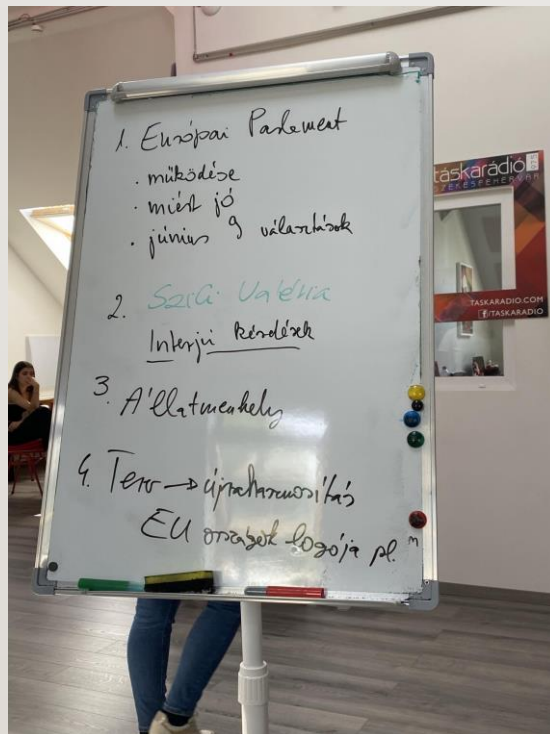 1. Európai Parlement
· működése
· miért jó
· június 9 választások
2. Szili Valéria
Interjú kérdések
3. Állatmenhely
4. Terv → újrahasznosítás
EU országok logója pl.
táskarádió
SZÉKESFEHÉRVÁR
TASKARADIO.COM
/TASKARADIO